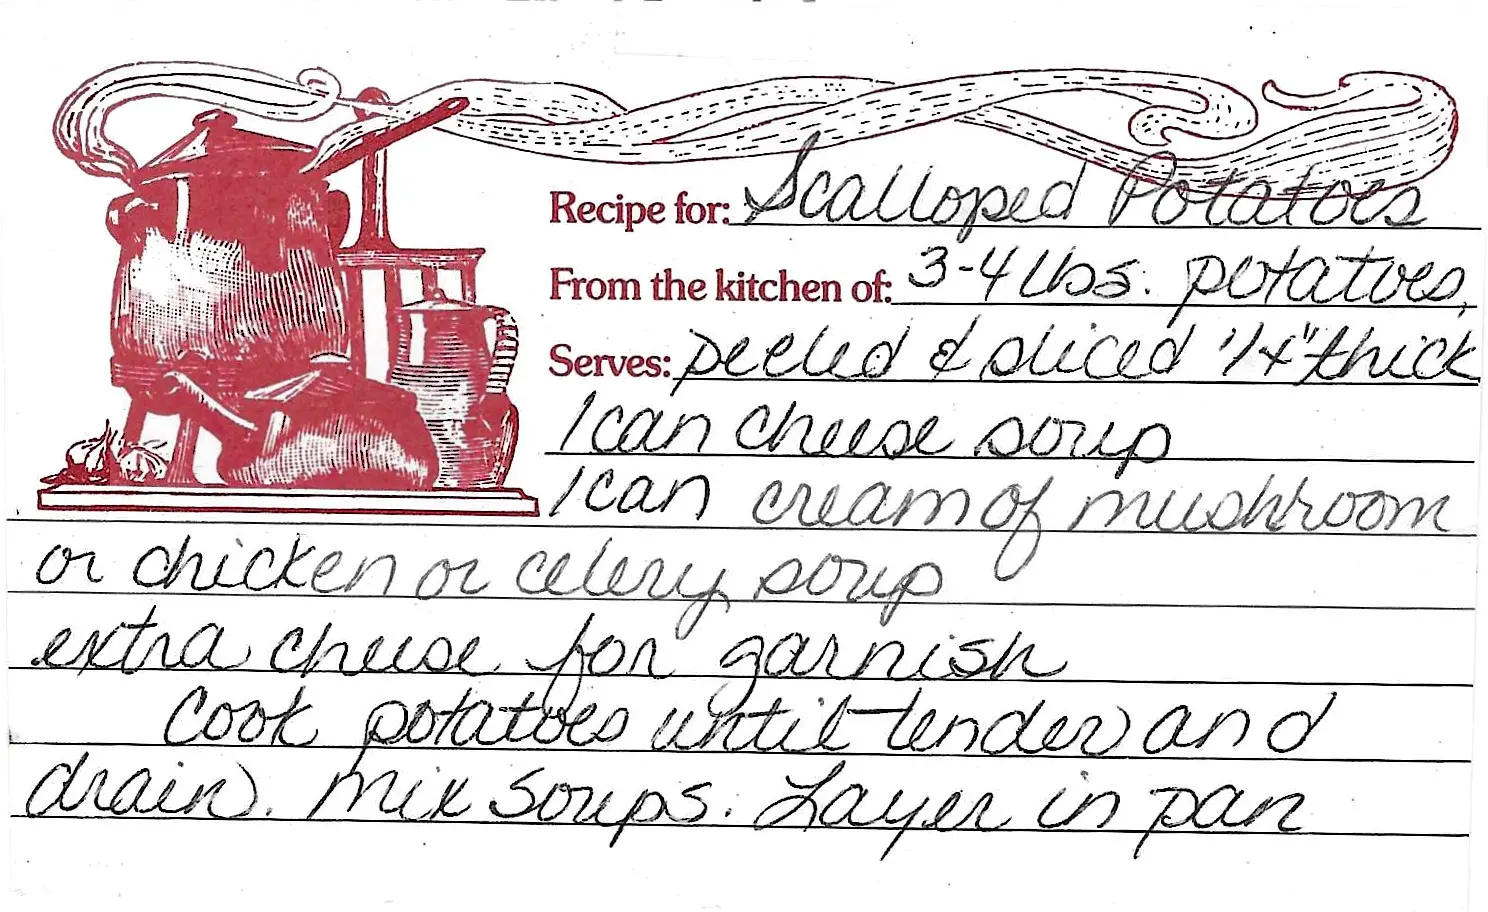 Recipe for: Scalloped Potatoes
From the kitchen of: 3-4 lbs. potatoes,
Serves: peeled & sliced 1/4" thick
1 can cheese soup
1 can cream of mushroom
or chicken or celery soup
extra cheese for garnish
Cook potatoes until tender and
drain. Mix soups. Layer in pan